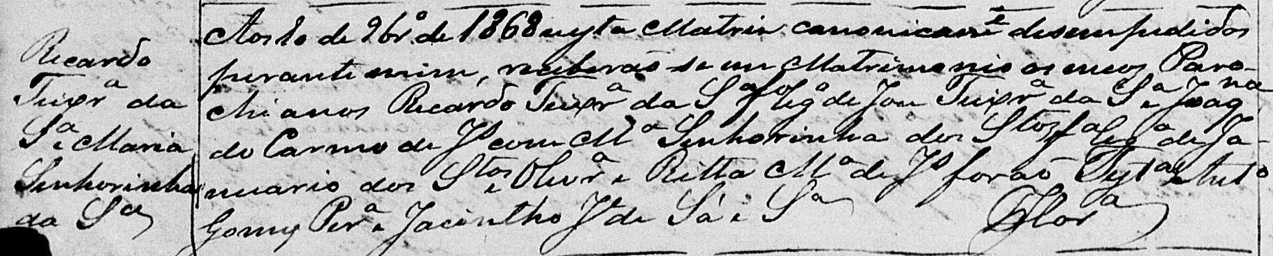 Ricardo
Teixrª da
Sª e Maria
Senhorinha
da Sª
Aos 10 de 9brº de 1868 nesta Matriz canonicamte desempedidos
perante mim, receberão-se em Matrimonio os meos Paro-
chianos Ricardo Teixrª da Sª fº legº de José Teixrª da Sª e Joaqna
do Carmo de Js com Mª Senhorinha dos Stos fª legª de Ja-
nuario dos Stos e Olivrª e Ritta Mª de Js forão Testas
Gomes Perª e Jacintho Je de Sá e Sª